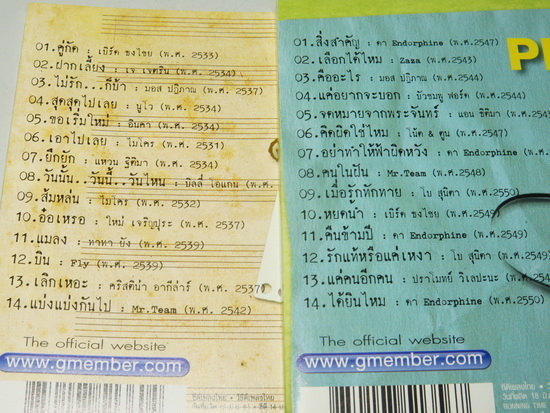 01.คู่กัด : เบิร์ด ธงไชย (พ.ศ. 2533)
02.ฝากเลี้ยง : เจ เจตริน (พ.ศ. 2534)
03.ไม่รัก...ก็บ้า : มอส ปฏิภาณ (พ.ศ. 2537)
04.สุดสุดไปเลย : นูโว (พ.ศ. 2534)
05.ขอเริ่มใหม่ : อินคา (พ.ศ. 2534)
06.เอาไปเลย : ไมโคร (พ.ศ. 2531)
07.ยึกยัก : แหวน ฐิติมา (พ.ศ. 2534)
08.วันนั้น...วันนี้...วันไหน : บิลลี่ โอแกน (พ.ศ.
09.ส้มหล่น : ไมโคร (พ.ศ. 2532)
10.อ๋อเหรอ : ใหม่ เจริญปุระ (พ.ศ. 2537)
11.แมลง : ทาทา ยัง (พ.ศ. 2539)
12.บิน : Fly (พ.ศ. 2539)
13.เลิกเหอะ : คริสติน่า อากีล่าร์ (พ.ศ. 2537)
14.แบ่งแบ่งกันไป : Mr.Team (พ.ศ. 2542)
The official website
www.gmember.com
01.สิ่งสำคัญ : ดา Endorphine (พ.ศ.2547)
02.เลือกได้ไหม : Zaza (พ.ศ. 2543)
03.คืออะไร : มอส ปฏิภาณ (พ.ศ.2544)
04.แค่อยากจะบอก : บัวชมพู ฟอร์ด (พ.ศ.2544)
05.จดหมายจากพระจันทร์ : แอน ธิติมา (พ.ศ.
06.คิดผิดใช่ไหม : โน้ต & ตูน (พ.ศ.2547)
07.อย่าทำให้ฟ้าผิดหวัง : ดา Endorphine (พ.ศ.
08.คนในฝัน : Mr.Team (พ.ศ.2548)
09.เมื่อรักทักทาย : โบ สุนิตา (พ.ศ.2550)
10.หยดน้ำ : เบิร์ด ธงไชย (พ.ศ. 2549)
11.คืนข้ามปี : ดา Endorphine (พ.ศ.2549)
12.รักแท้หรือแค่เหงา : โบ สุนิตา (พ.ศ.
13.แค่คนอีกคน : ปราโมทย์ วิเลปะนะ (พ.ศ.
14.ได้ยินไหม : ดา Endorphine (พ.ศ.2550)
The official website
www.gmember.com